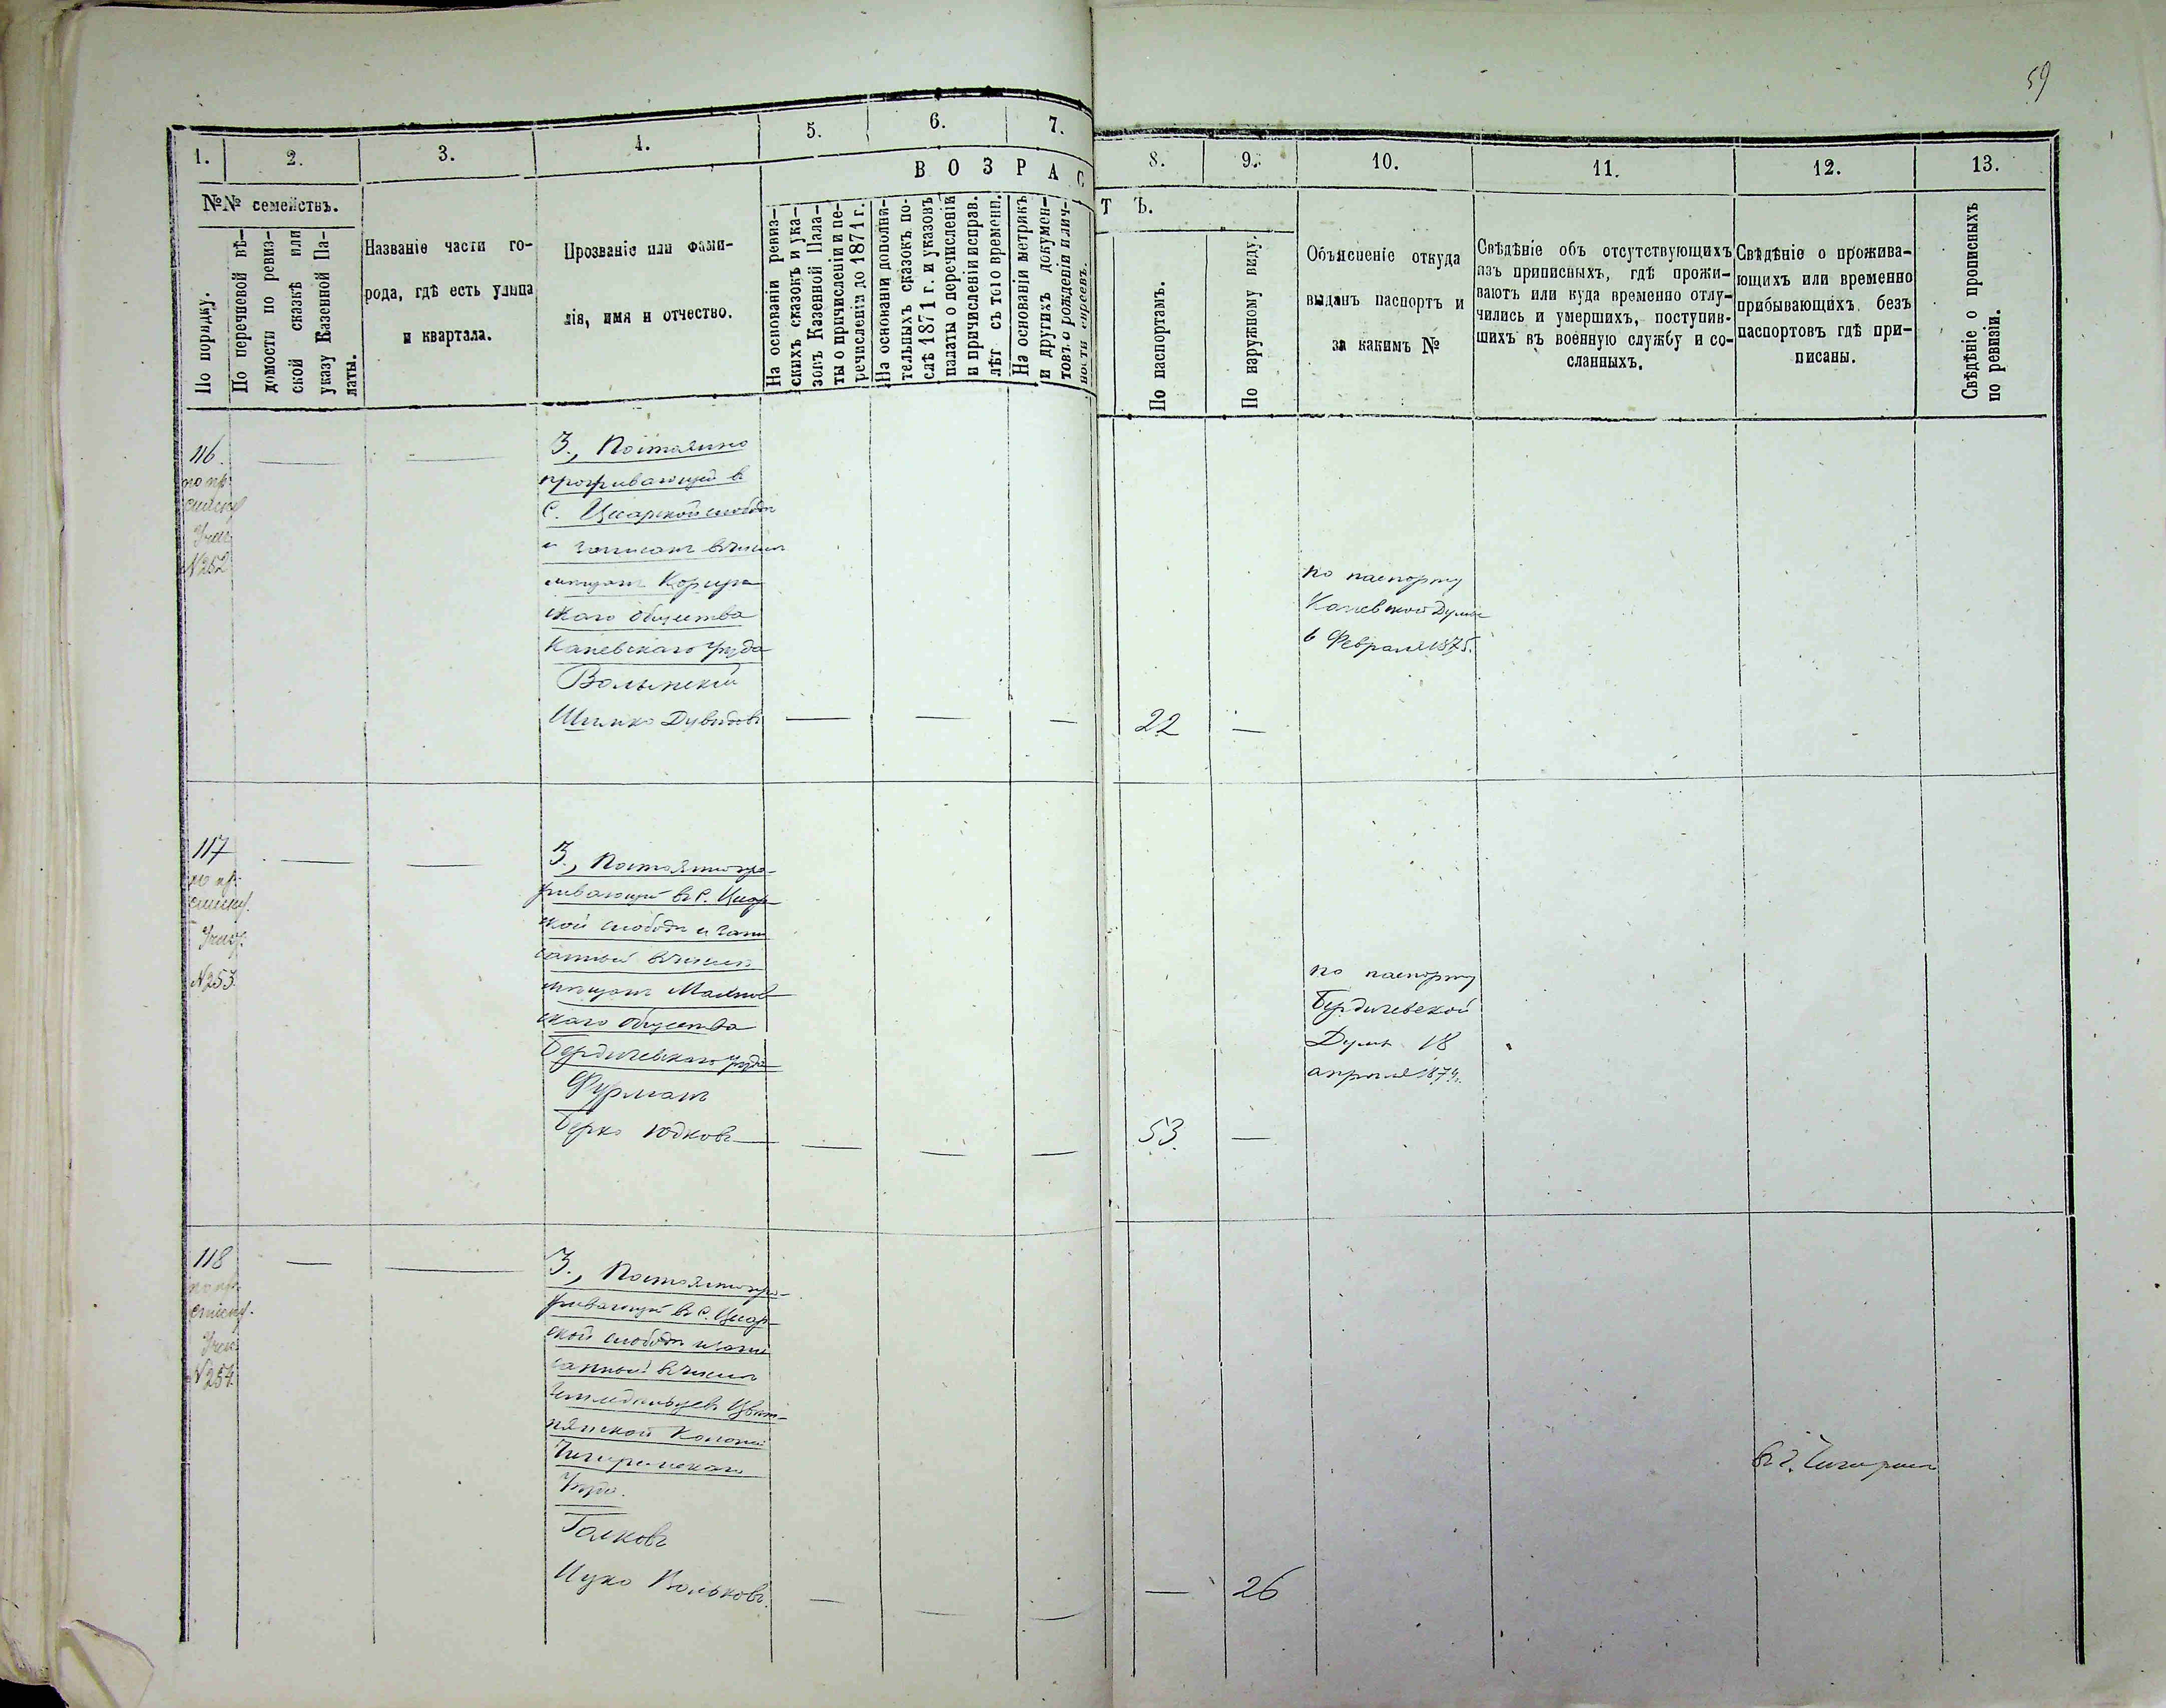 59
1.
2.
3.
4.
5.
6.
7.
8.
9.
10.
11.
12.
13.
В О З Р А С
Т Ъ.
№№ семействъ.
По порядку.
По перечневой вѣ-
домости по ревиз-
ской сказкѣ или
указу Казенной Па-
латы.
Названіе части го-
рода, гдѣ есть улица
и квартала.
Прозваніе или фами-
лія, имя и отчество.
На основаніи ревиз-
скихъ сказокъ и ука-
зовъ Казенной Пала-
ты о причисленіи и пе-
речисленіи до 1871 г.
На основаніи дополни-
тельныхъ сказокъ по-
слѣ 1871 г. и указовъ
палаты о перечисленіи
и причисленіи исправ.
лѣт съ того времени.
На основаніи метрикъ
и другихъ докумен-
товъ о рожденіи и лич-
ности евреевъ.
По паспортамъ.
По наружному виду.
Объясненіе откуда
выданъ паспортъ и
за какимъ №
Свѣдѣніе объ отсутствующихъ
изъ приписныхъ, гдѣ прожи-
ваютъ или куда временно отлу-
чились и умершихъ, поступив-
шихъ въ военную службу и со-
сланныхъ.
Свѣдѣніе о прожива-
ющихъ или временно
прибывающихъ безъ
паспортовъ гдѣ при-
писаны.
Свѣдѣніе о прописныхъ
по ревизіи.
116.
по пр.
списку
N 252
3., Постоянно
проживающий в
С. Цкарской слободѣ
и записанъ въ число
мѣщанъ Корсун
скаго общества
Каневскаго уѣзда
Волынскій
Шимко Дувидовъ
22
по паспорту
Каневской Думы
6 Февраля 1875.
117
по пр.
списку.
N 253.
3., Постоянно про-
живающий въ С. Цкар
ской слободѣ и запи
санный въ число
мѣщанъ Махнов
скаго общества
Бердичевскаго уѣзда
Фурманъ
Берко Юдковъ
53
по паспорту
Бердичевской
Думы 18
апрѣля 1874.
118
по пр.
списку.
N 254.
3., Постоянно про-
живающий въ С. Цкар
ской слободѣ и запи
санный въ число
земледѣльцевъ Цвѣт-
нянской Колоніи
Чигиринскаго
Уѣзда.
Галковъ
Ицко Вольковъ.
26
въ г. Чигирин